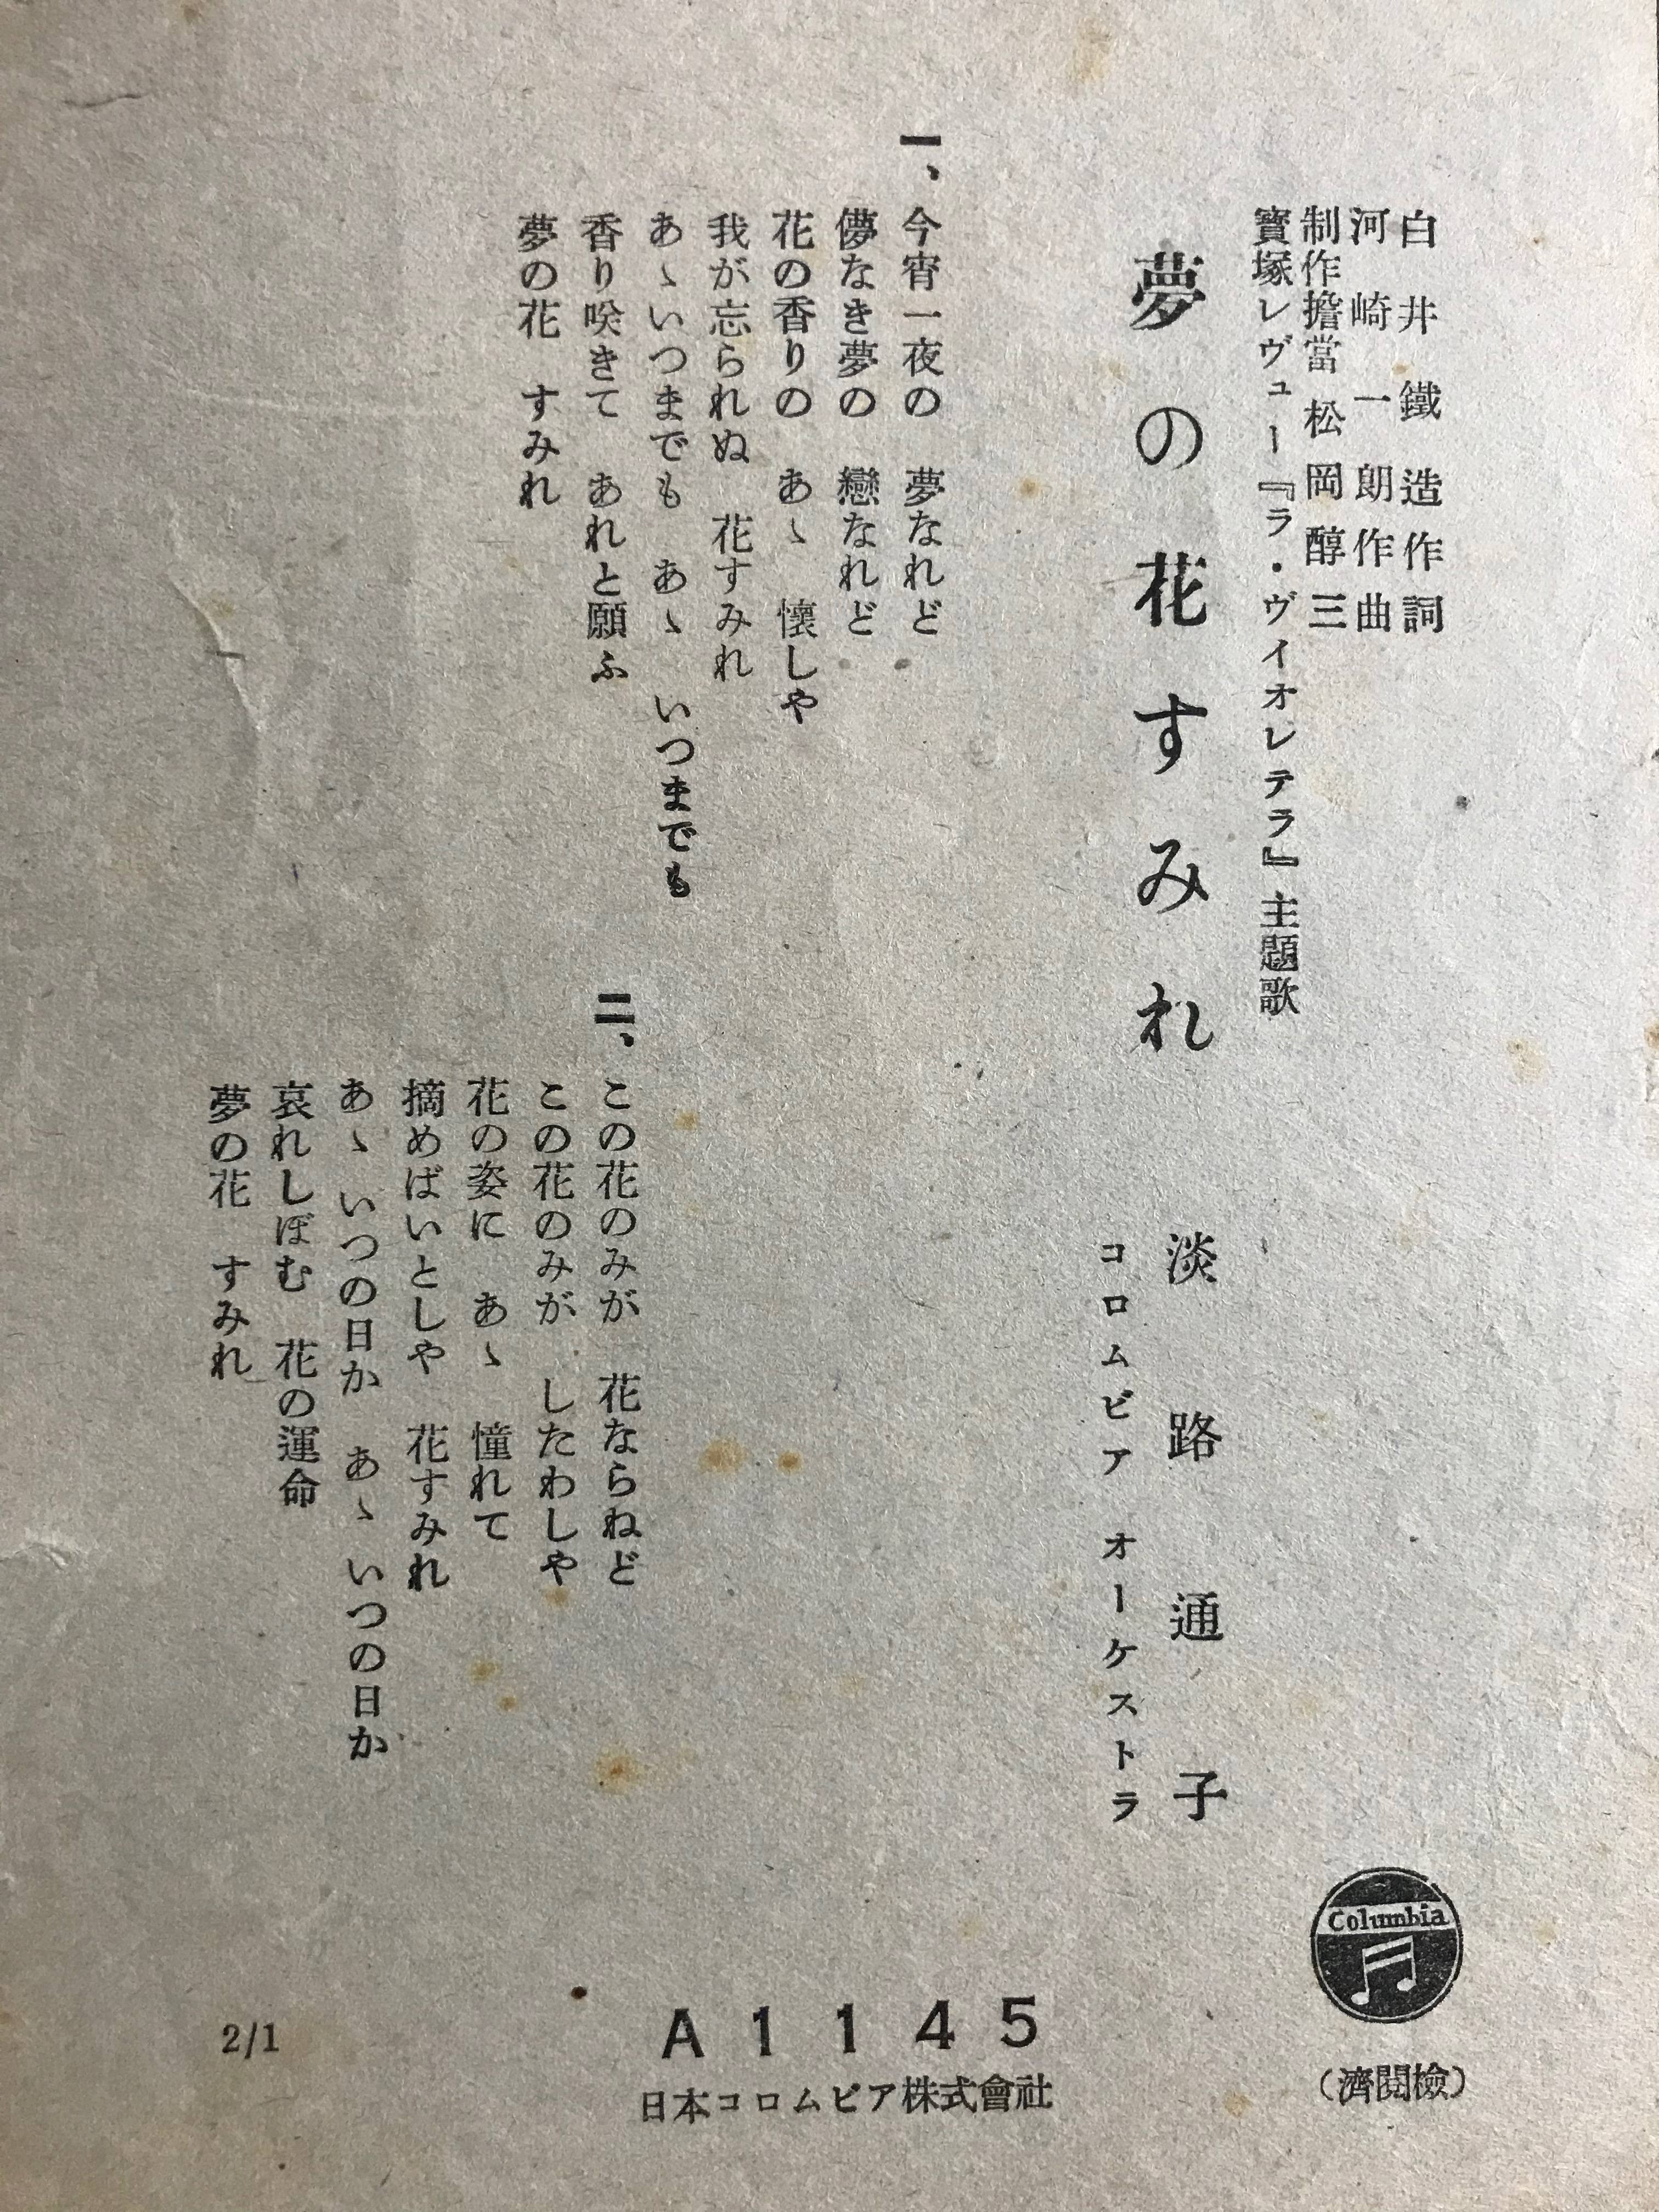 白井鐵造作詞
河崎一朗作曲
制作擔當 松岡醇三
寶塚レヴュー『ラ・ヴイオレテラ』主題歌
夢の花すみれ
淡路通子
コロムビア オーケストラ
一、今宵一夜の 夢なれど
儚なき夢の 戀なれど
花の香りの あゝ 懷しや
我が忘られぬ 花すみれ
あゝいつまでも あゝ いつまでも
香り咲きて あれと願ふ
夢の花 すみれ
二、この花のみが 花ならねど
この花のみが したわしや
花の姿に あゝ 憧れて
摘めばいとしや 花すみれ
あゝ いつの日か あゝ いつの日か
哀れしぼむ 花の運命
夢の花 すみれ
Columbia
(濟閱檢)
A1145
日本コロムビア株式會社
2/1